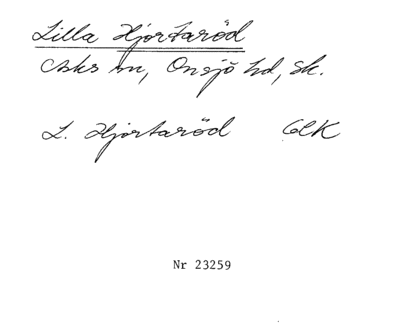 Lilla Hjortaröd
Asks sn, Onsjö hd, Sk.
L. Hjortaröd GEK
Nr 23259